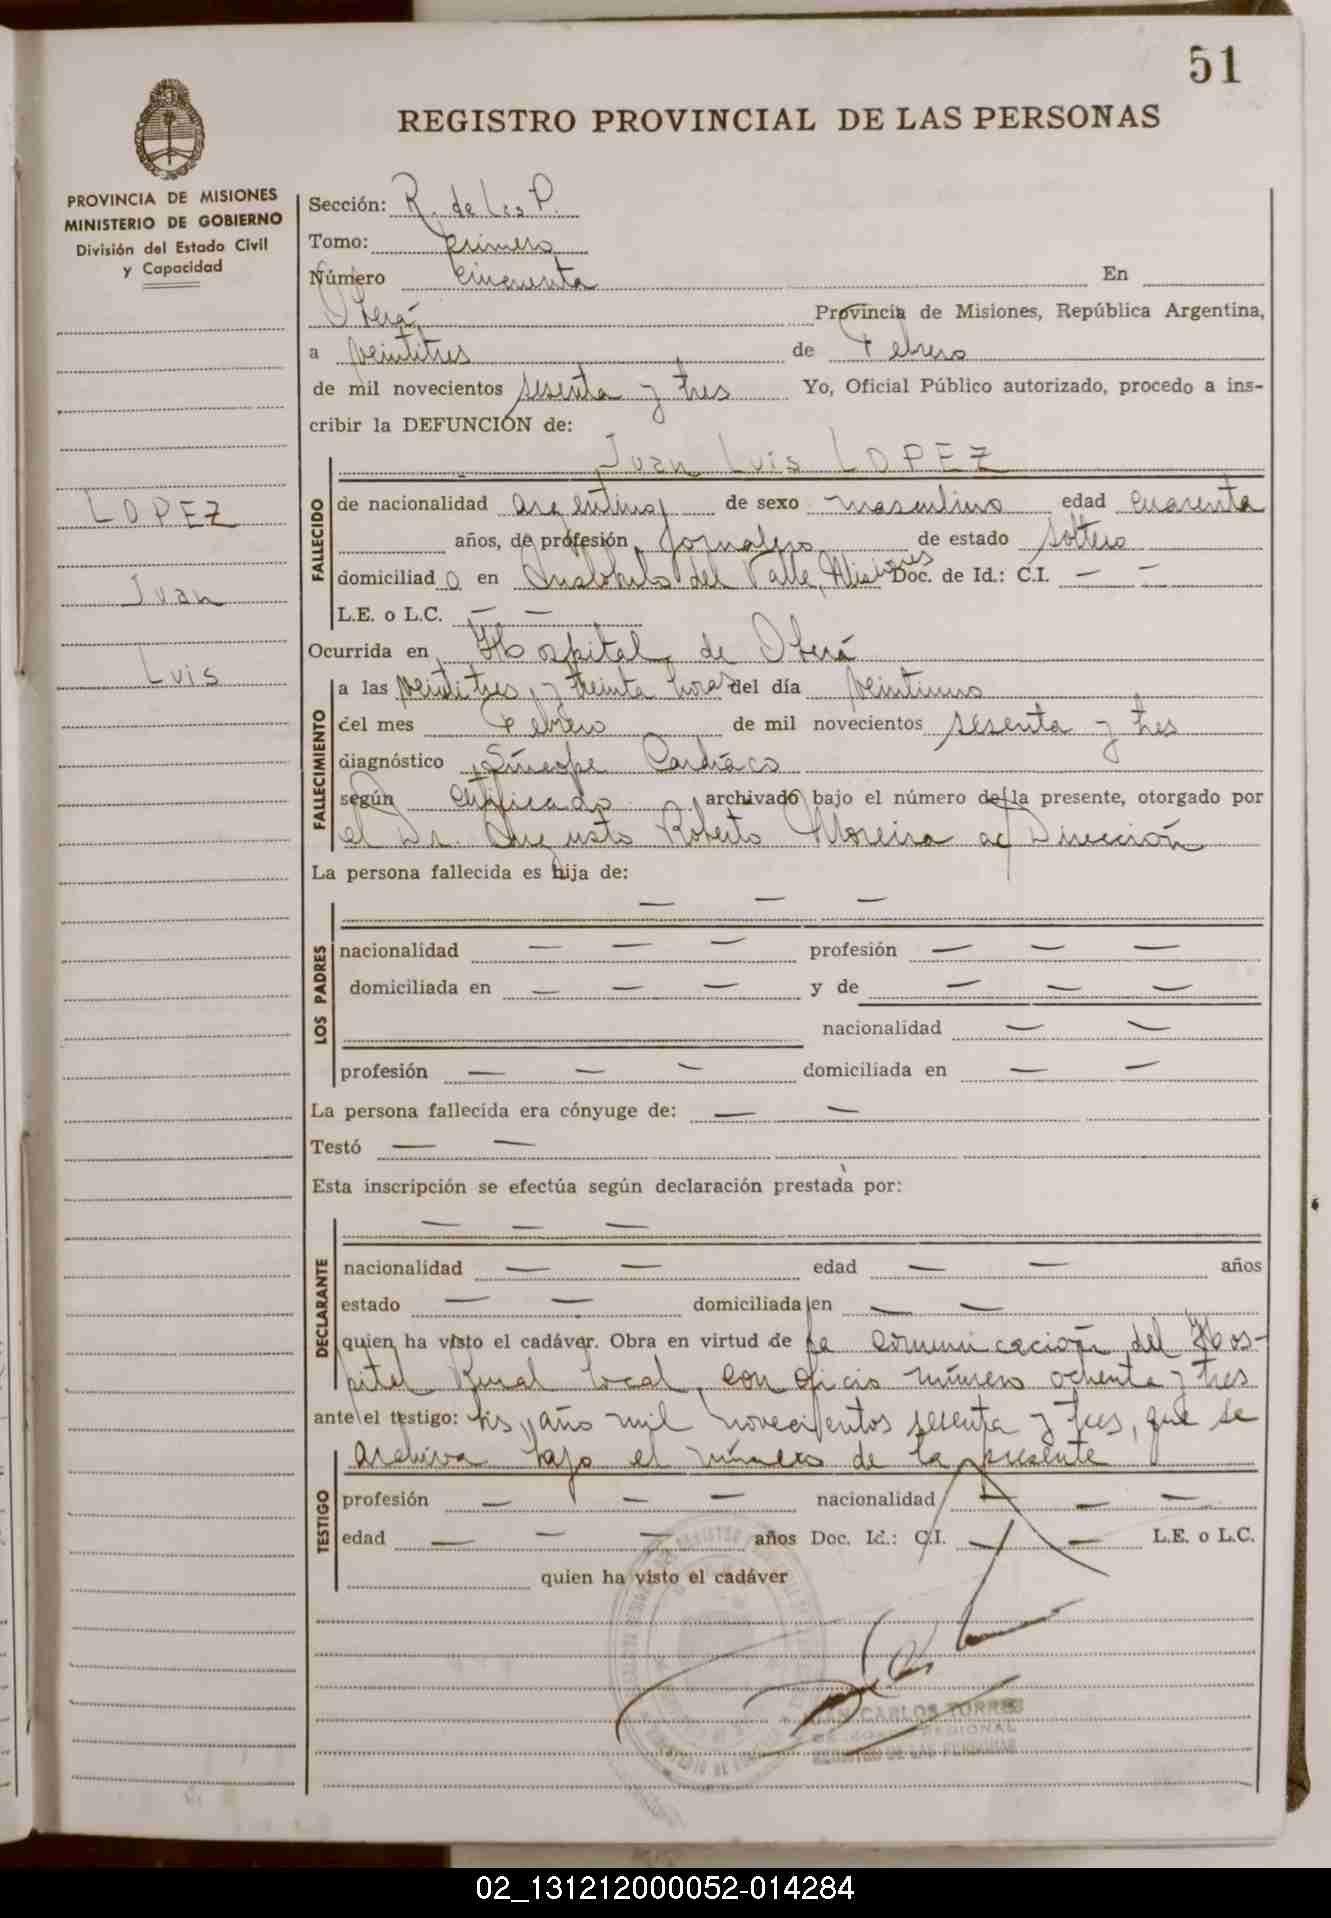 51
REGISTRO PROVINCIAL DE LAS PERSONAS
PROVINCIA DE MISIONES
MINISTERIO DE GOBIERNO
División del Estado Civil
y Capacidad
LOPEZ
Juan
Luis
Sección: R. de Las P.
Tomo: primero
Número cincuenta En
Oberá Provincia de Misiones, República Argentina,
a veintitres de Febrero
de mil novecientos sesenta y tres Yo, Oficial Público autorizado, procedo a ins-
cribir la DEFUNCIÓN de:
Juan Luis LOPEZ
FALLECIDO
de nacionalidad argentina de sexo masculino edad cuarenta
años, de profesión Jornalero de estado soltero
domiciliado en Aristóbulo del Valle, Misiones Doc. de Id.: C.I. — —
L.E. o L.C. — —
Ocurrida en Hospital de Oberá
FALLECIMIENTO
a las veintitres y treinta horas del día veintiuno
del mes Febrero de mil novecientos sesenta y tres
diagnóstico Síncope Cardíaco
según certificado archivado bajo el número de la presente, otorgado por
el Dr. Augusto Roberto Moreira Dirección
La persona fallecida es hija de:
— — —
LOS PADRES
nacionalidad — — — profesión — — —
domiciliada en — — — y de — — —
nacionalidad — —
profesión — — — domiciliada en — —
La persona fallecida era cónyuge de: — —
Testó — —
Esta inscripción se efectúa según declaración prestada por:
— — —
DECLARANTE
nacionalidad — — edad — — años
estado — — domiciliada en — —
quien ha visto el cadáver. Obra en virtud de la comunicación del Hos-
pital Rural local, con oficio número ochenta y tres
ante el testigo: año mil novecientos sesenta y tres, que se
archiva bajo el número de la presente
TESTIGO
profesión — — — nacionalidad — — —
edad — — — años Doc. Id.: C.I. — — L.E. o L.C.
quien ha visto el cadáver
JUAN CARLOS TORRES
REGIONAL
REGISTRO DE LAS PERSONAS
02_131212000052-014284